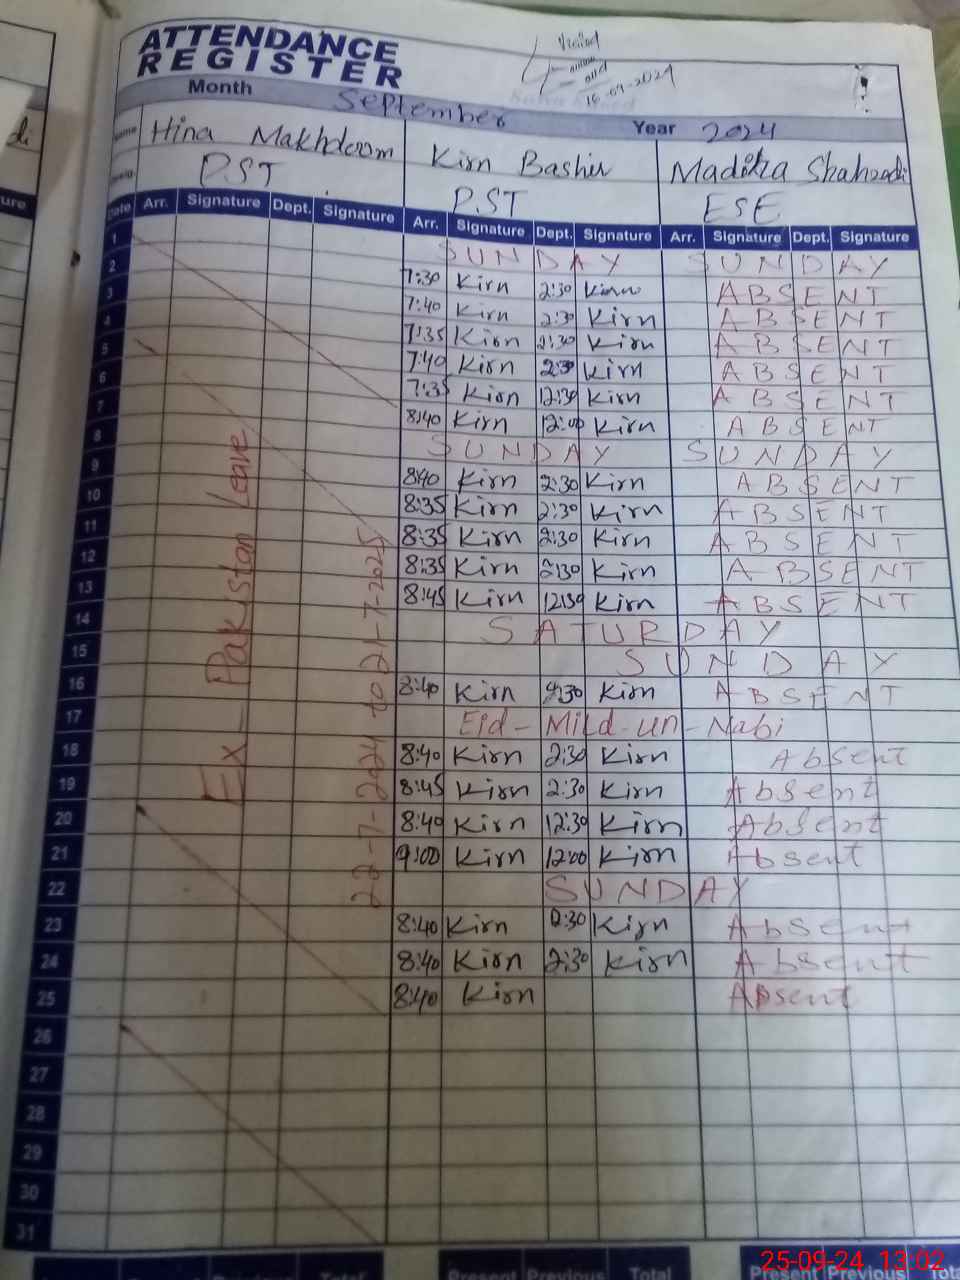 ATTENDANCE
REGISTER
Visited
and
16-09-2024
Month September Year 2024
Name Hina Makhdoom Kirn Bashir Madiha Shahzadi
PST PST ESE
Date Arr. Signature Dept. Signature Arr. Signature Dept. Signature Arr. Signature Dept. Signature
1 SUNDAY SUNDAY
2 7:30 Kirn 2:30 Kirn ABSENT
3 7:40 Kirn 2:30 Kirn ABSENT
4 7:35 Kirn 2:30 Kirn ABSENT
5 7:40 Kirn 2:30 Kirn ABSENT
6 7:35 Kirn 12:30 Kirn ABSENT
7 8:40 Kirn 12:00 Kirn ABSENT
8 SUNDAY SUNDAY
9 8:40 Kirn 2:30 Kirn ABSENT
10 8:35 Kirn 2:30 Kirn ABSENT
11 8:35 Kirn 2:30 Kirn ABSENT
12 8:35 Kirn 2:30 Kirn ABSENT
13 8:45 Kirn 12:30 Kirn ABSENT
14 SATURDAY
15 SUNDAY
16 8:40 Kirn 2:30 Kirn ABSENT
17 Eid-Mild-un-Nabi
18 8:40 Kirn 2:30 Kirn Absent
19 8:45 Kirn 2:30 Kirn Absent
20 8:40 Kirn 12:30 Kirn Absent
21 9:00 Kirn 12:00 Kirn Absent
22 SUNDAY
23 8:40 Kirn 2:30 Kirn Absent
24 8:40 Kirn 2:30 Kirn Absent
25 8:40 Kirn Absent
26
27
28
29
30
31
Ex-Pakistan Leave
22-7-2024 to 21-7-2025
Total Previous Total Present Previous
25-09-24 13:02